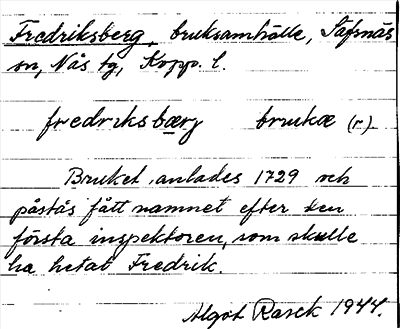 Fredriksberg, bruksamhälle, Säfsnäs
sn, Nås tg, Kopp. l.
fredriksbærj brukæ (r)
Bruket anlades 1729 och
påstås fått namnet efter den
första inspektoren, som skulle
ha hetat Fredrik.
Algot Rasck 1944.